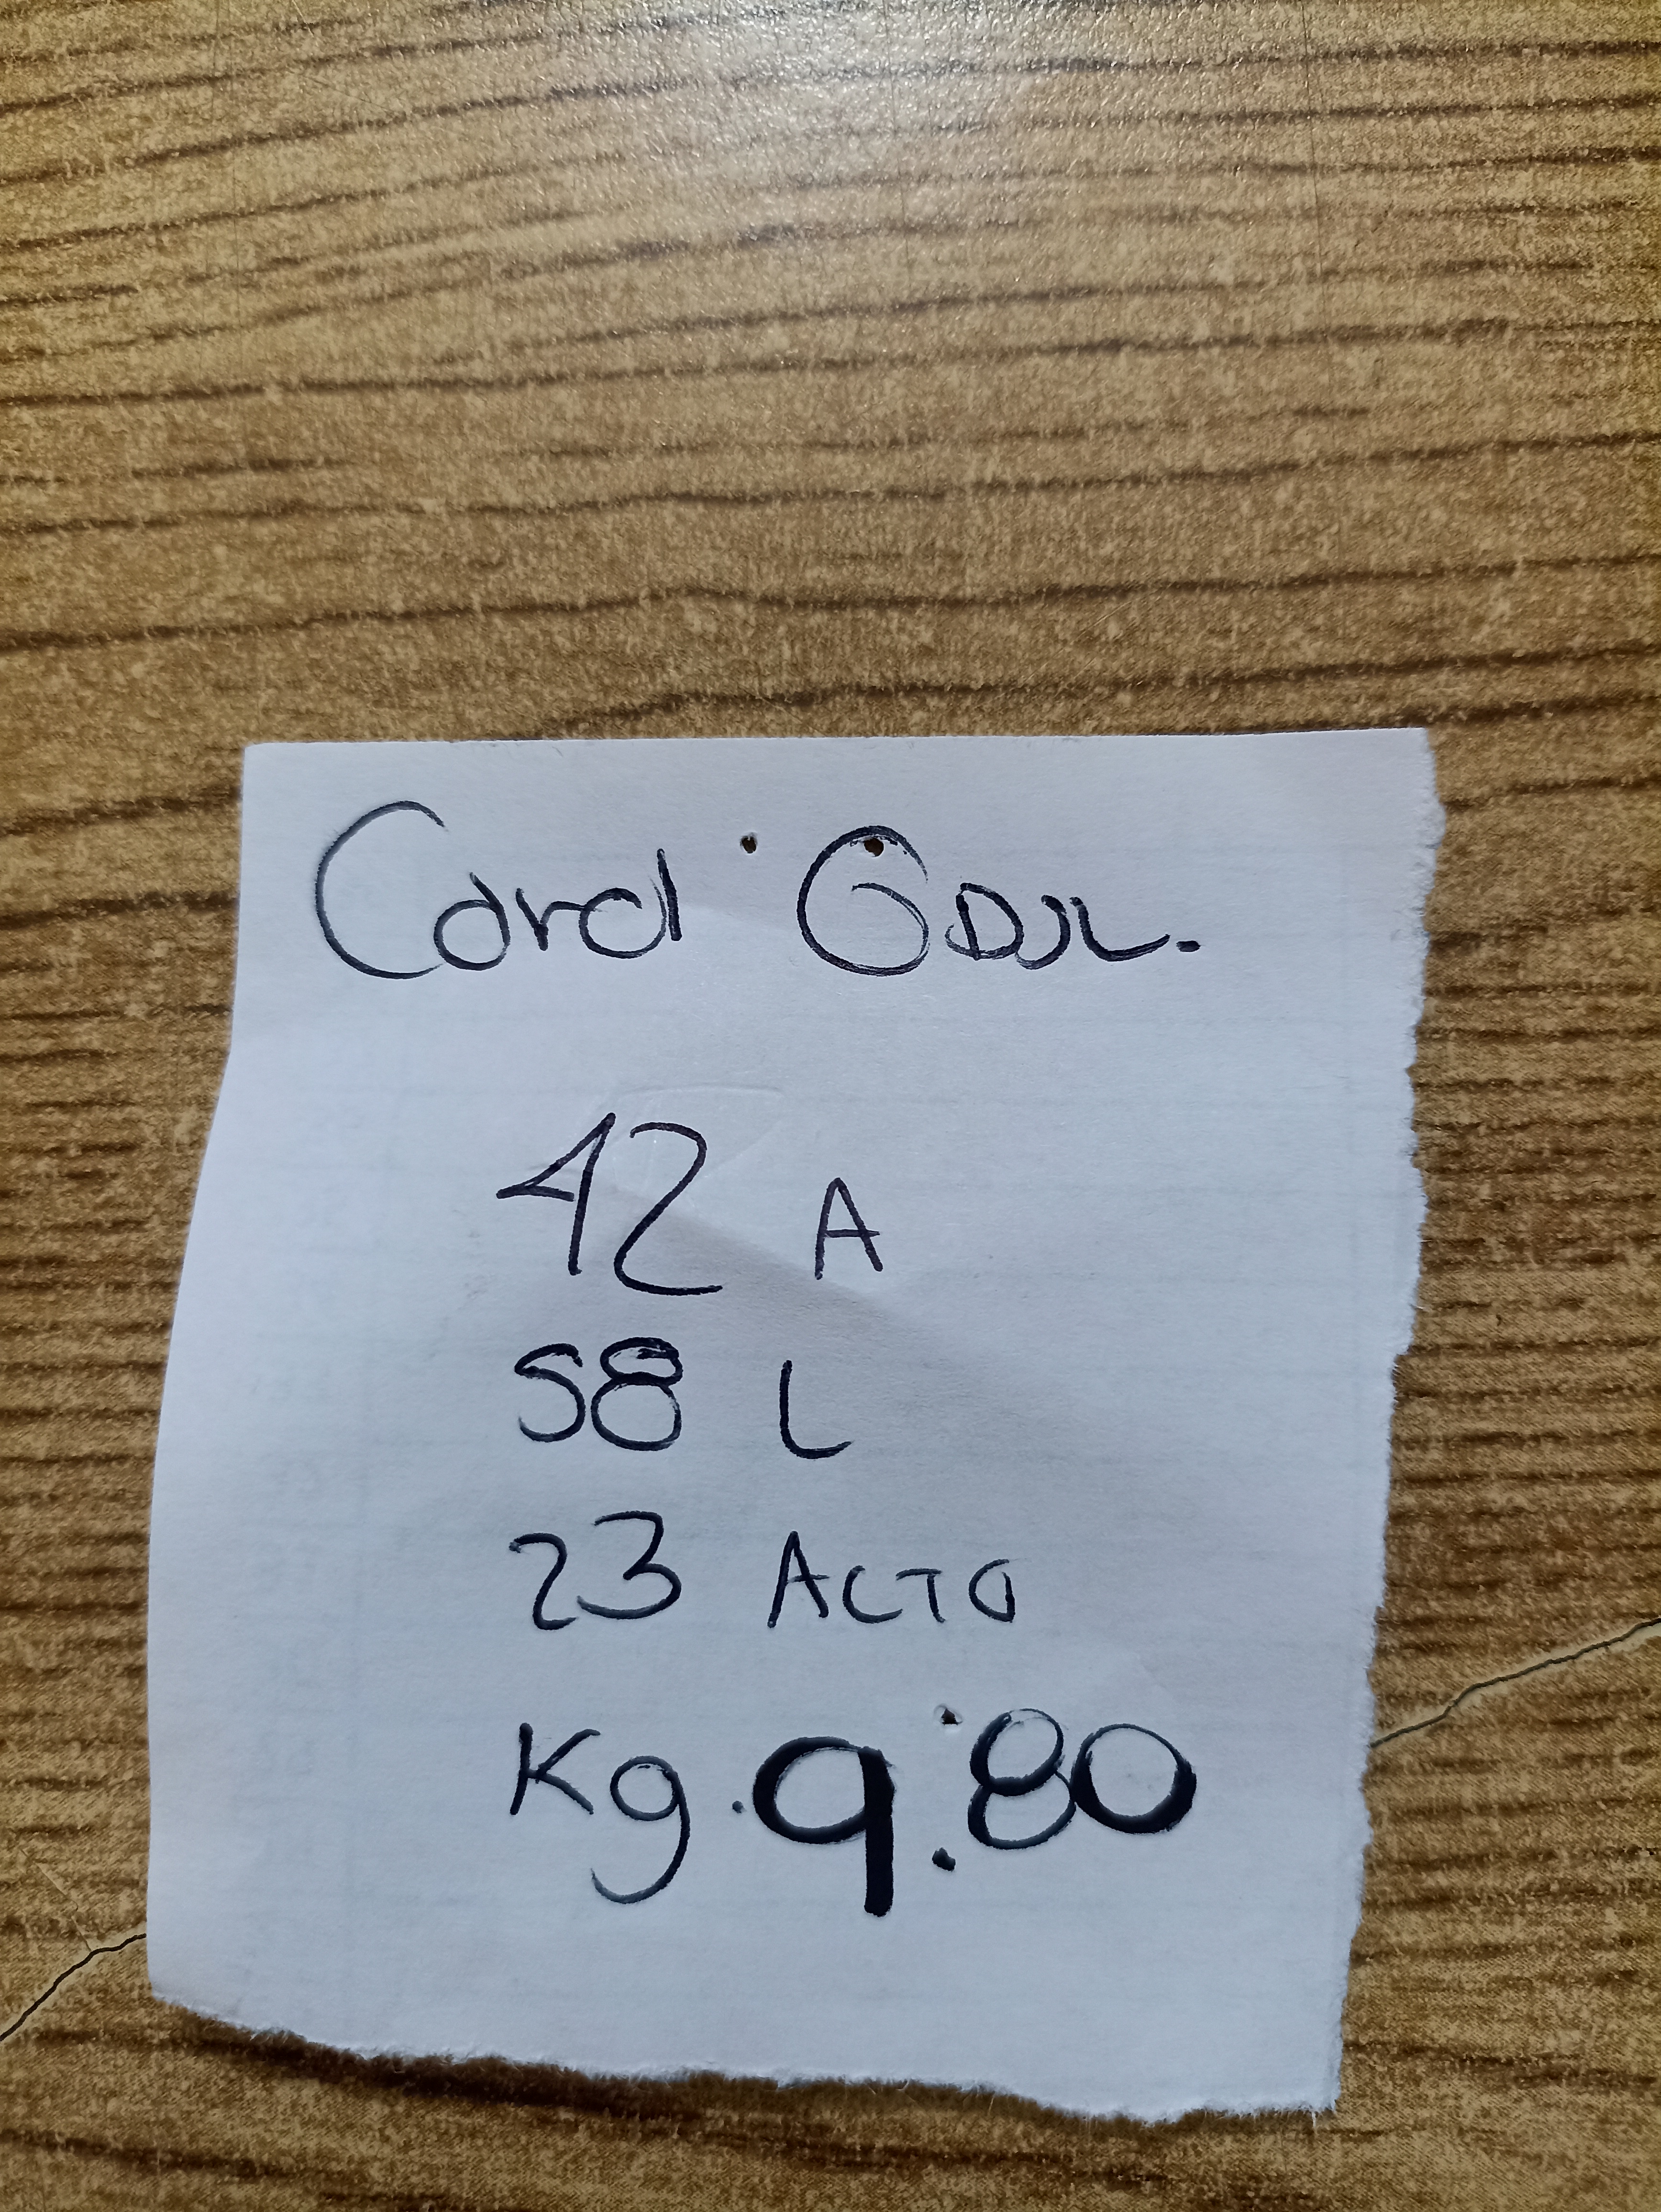 Coral GDJL.
42 A
58 L
23 ACTO
Kg. 9.80